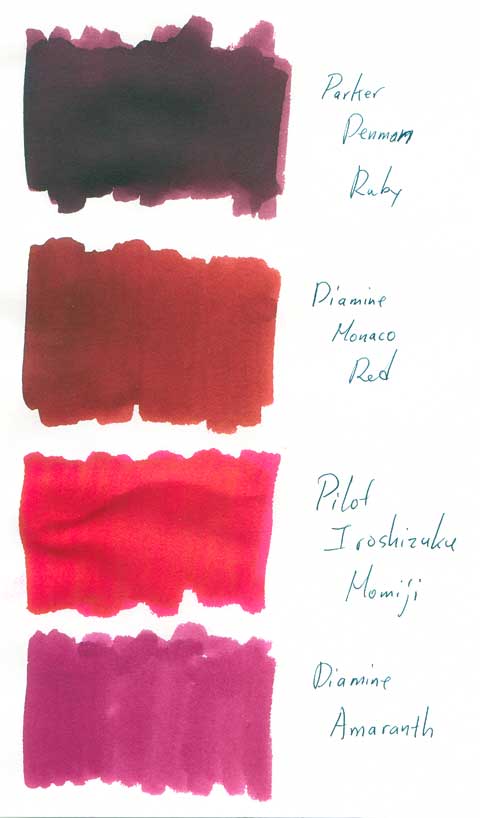 Parker
Penman
Ruby
Diamine
Monaco
Red
Pilot
Iroshizuku
Momiji
Diamine
Amaranth